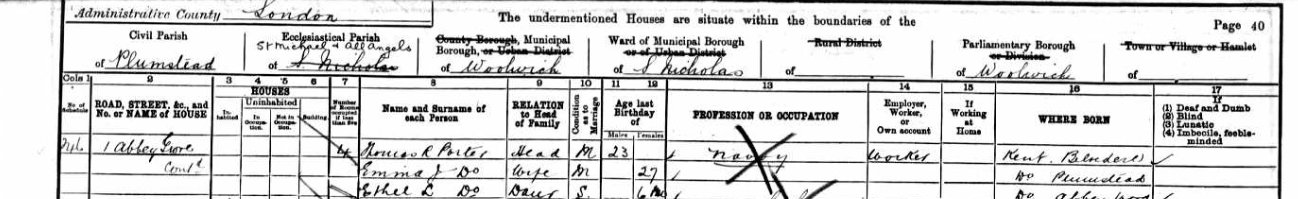 Administrative County London
The undermentioned Houses are situate within the boundaries of the
Page 40
Civil Parish
of Plumstead
Ecclesiastical Parish
St Michael & All Angels
of S. Nicholas
County Borough, Municipal
Borough, or Urban District
of Woolwich
Ward of Municipal Borough
or of Urban District
of S. Nicholas
Rural District
of
Parliamentary Borough
or Division
of Woolwich
Town or Village or Hamlet
of
Cols 1 2 3 4 5 6 7 8 9 10 11 12 13 14 15 16 17
No. of Schedule
ROAD, STREET, &c., and No. or NAME of HOUSE
HOUSES
In-habited
Uninhabited
In Occupa-tion.
Not in Occupa-tion.
Building.
Number of Rooms occupied if less than five
Name and Surname of each Person
RELATION to Head of Family
Condition as to Marriage
Age last Birthday of
Males Females
PROFESSION OR OCCUPATION
Employer, Worker, or Own account
If Working at Home
WHERE BORN
If
(1) Deaf and Dumb
(2) Blind
(3) Lunatic
(4) Imbecile, feeble-minded
1 Abbey Grove 4 Thomas R Porter Head M 23 Navvy Worker Kent
Contd Emma J Do Wife M 27 Do Plumstead
Ethel L Do Daur S. 6 Do Abbey Wood